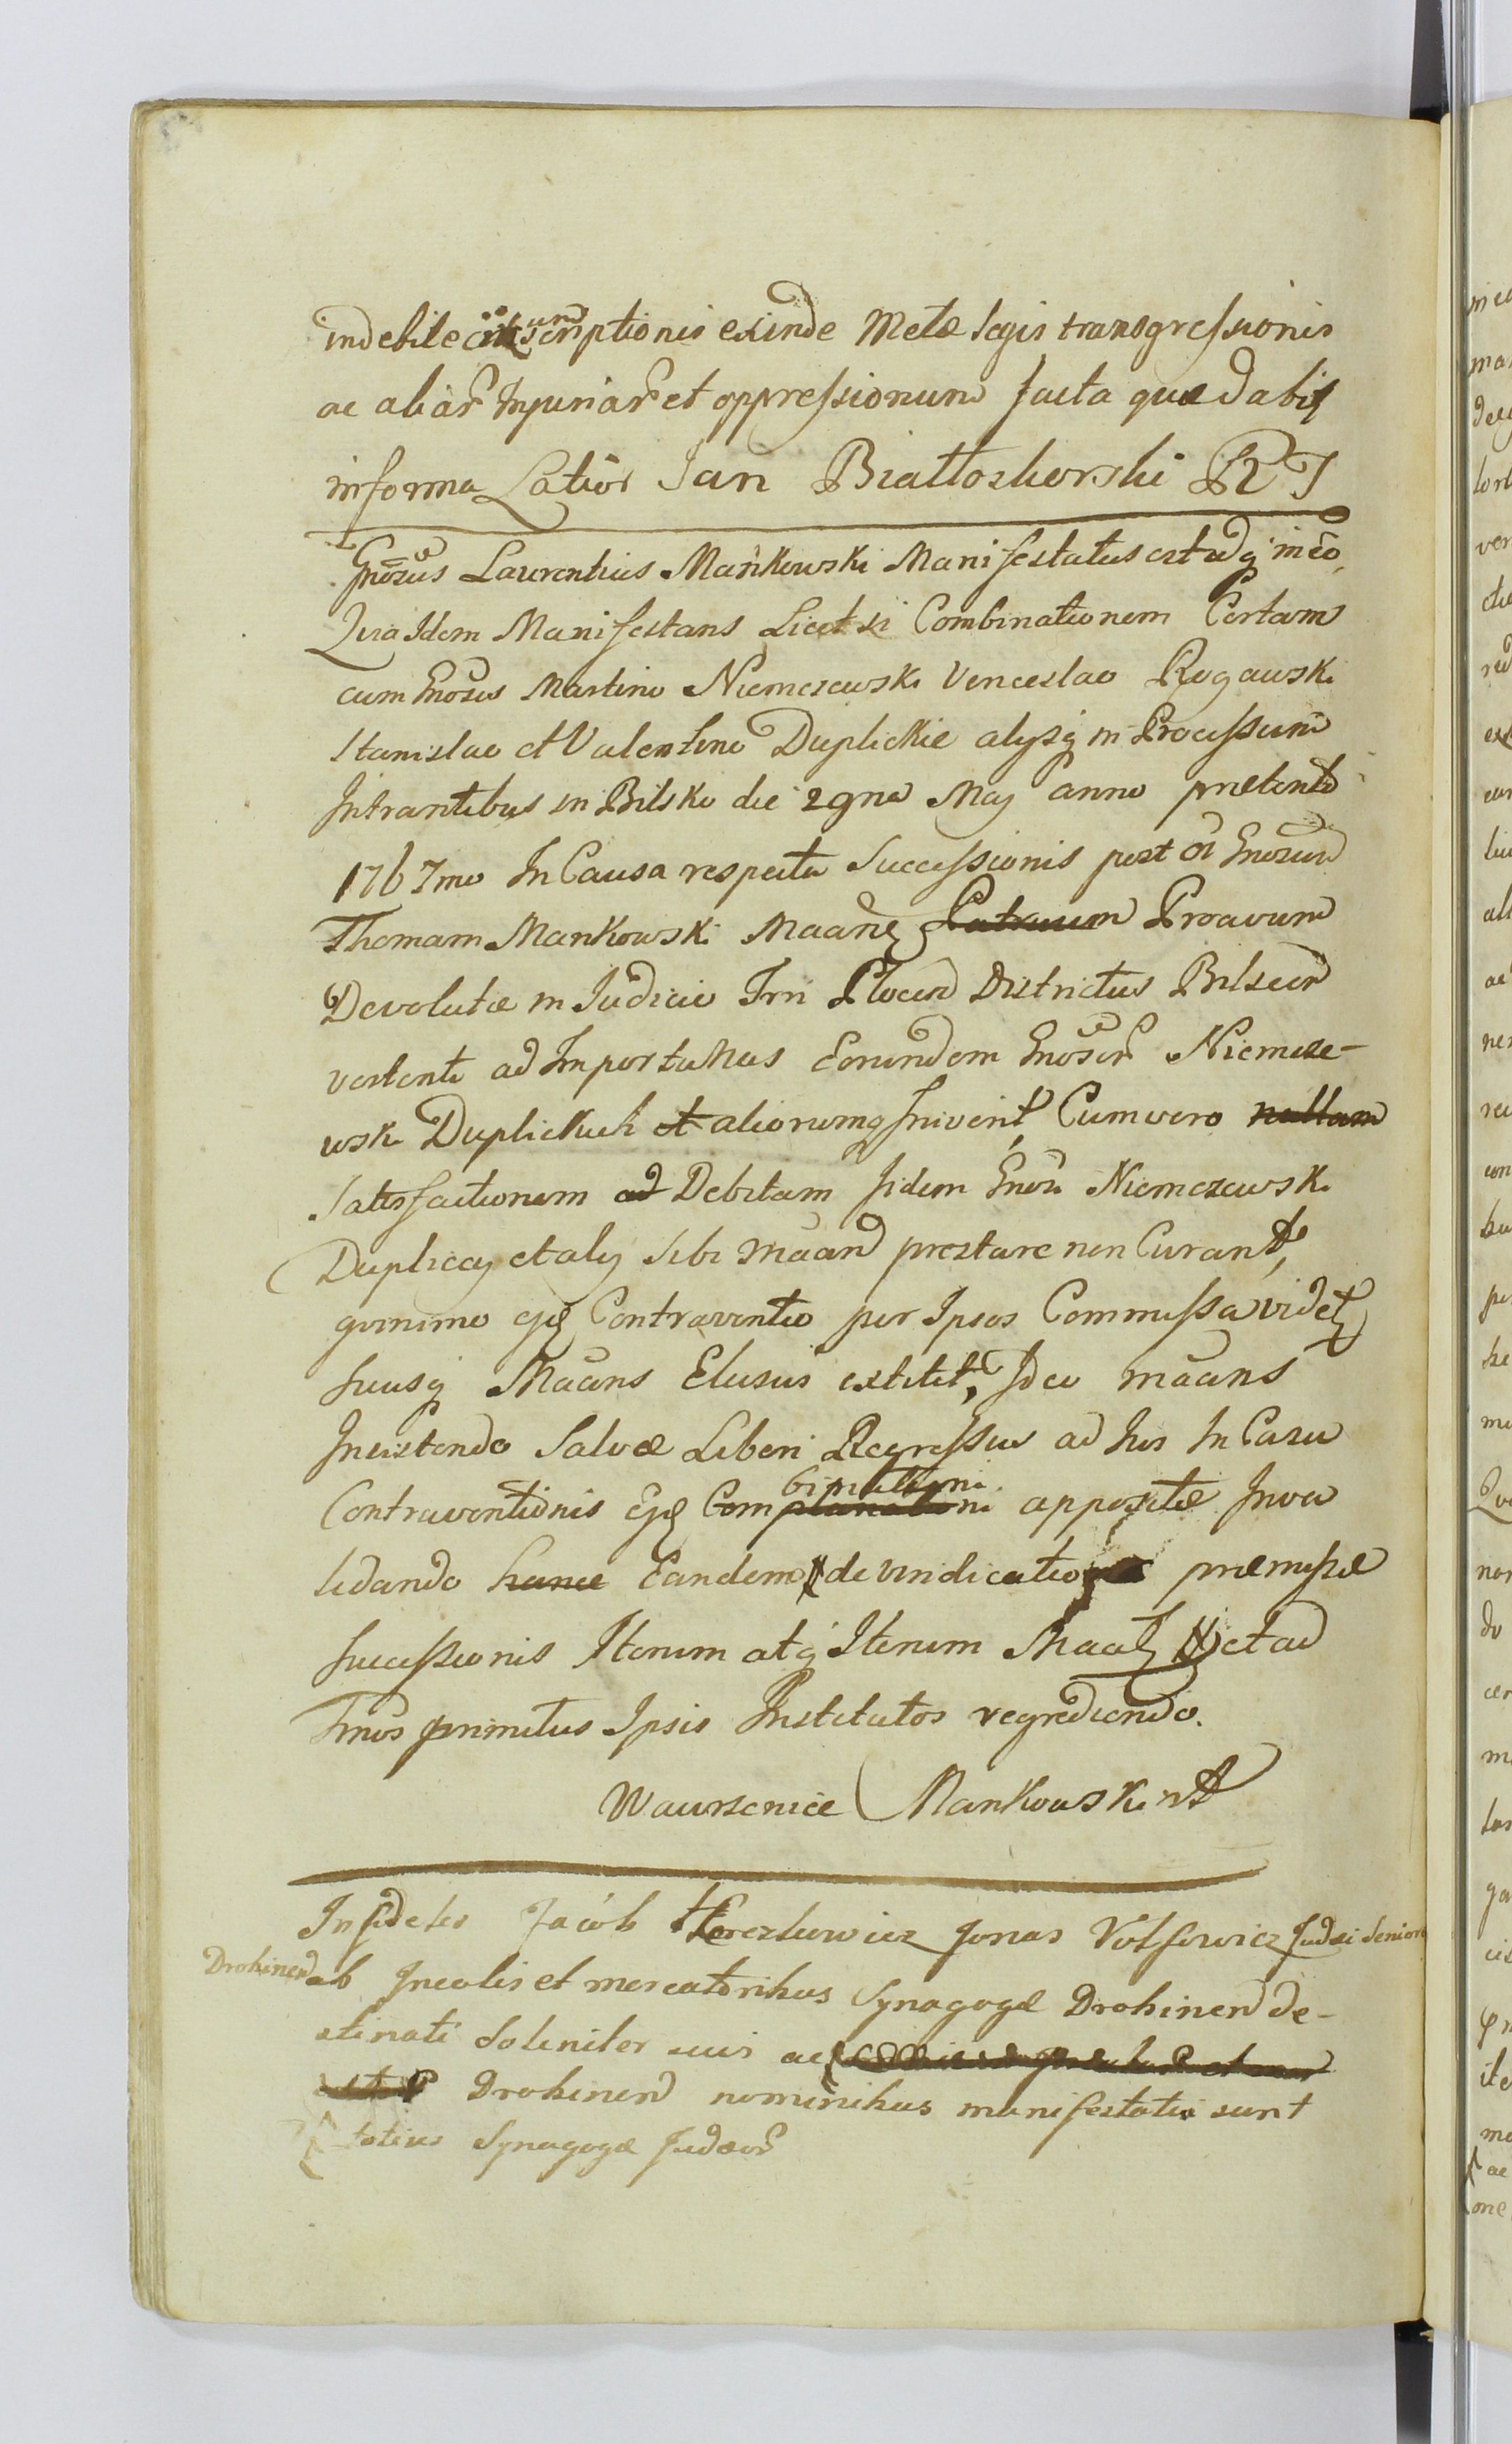 indebile scriptionis exinde Metæ legis transgressionis
ac aliar Injuriar et oppressionum facta quæ dabit
in forma Latiori Jan Białłoskorski RT
Gnōsus Laurentius Mańkowski Manifestatus est idq in eo,
Quia Idem Manifestans Licet si Combinationem Certam
cum Gnōsis Martino Niemczewski Venceslao Rogawski
Stanislao et Valentino Duplickie alysq in Processum
Intrantibus in Bilsko die 29na May anno prætento
1767mo In Causa respectu Successionis post ol Gnosum
Thomam Mankowski Maane Patruum Proavum
Devolutæ in Judicio Trri Districtus Bilscen
vertenti ad Importunas Eorundem Gnosor Niemcze-
wski Duplickich et aliorumq Iniverit, Cum vero nullam
Satisfactionem ad Debitam fidem Gnosi Niemczewski
Dupliccy et aly Sibi Maan præstare non Curant,
quinimo ejq Contraventio per Ipsos Commissa videt
suusq Maans Elusus extitit, Ideo maans
Insistendo Salvæ Liberi Regressus ad Jus In Casu
Contraventionis Ejq Complanationi binationi appositæ Inva
lidando hance Eandem de vindicatione præmissæ
Successionis Iterum atq Iterum Maat et ad
Trnos primitus Ipsis Institutos regrediendo.
Wawrzeniec Mankowski
Infideles Jacob Herszkowicz Jonas Volfowicz Judæi Seniores
Drohicen ab Incolis et mercatoribus Synagogæ Drohicen de-
stinati Soleniter suis ac
Drohicen nominibus manifestati sunt
totius Synagogæ Judæor